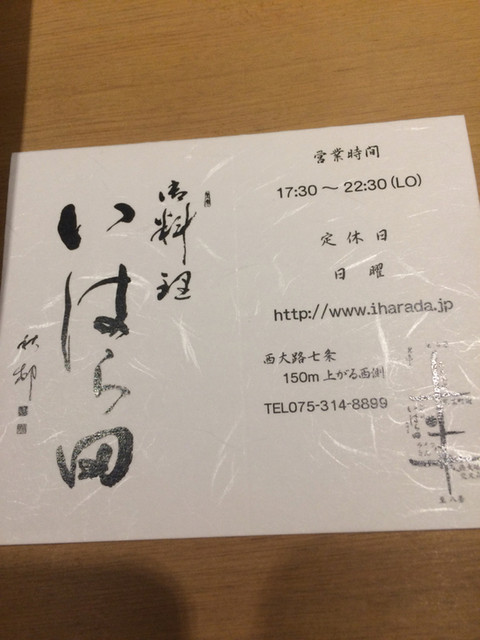 御料理
いはら田
秋邨
営業時間
17:30～22:30(LO)
定休日
日曜
http://www.iharada.jp
西大路七条
150m上がる西側
TEL075-314-8899
いはら田